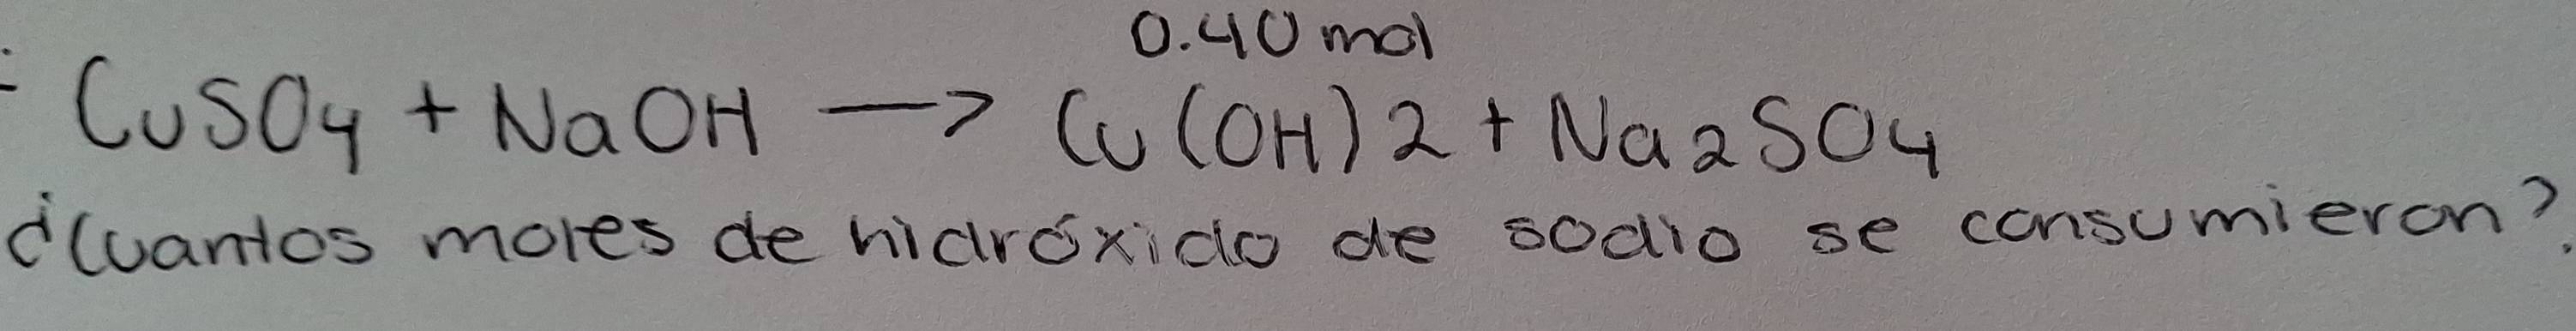 0.40 mol
CuSO4 + NaOH → Cu(OH)2 + Na2SO4
¿Cuantos moles de hidróxido de sodio se consumieron?.